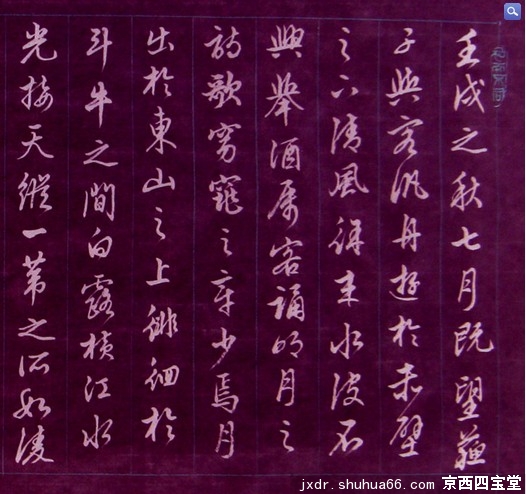 壬戌之秋七月既望蘇
子與客汎舟遊於赤壁
之下清風徐来水波不
興舉酒属客誦明月之
詩歌窈窕之章少焉月
出於東山之上徘徊於
斗牛之間白露横江水
光接天縱一葦之所如凌
jxdr.shuhua66.com 京西四宝堂